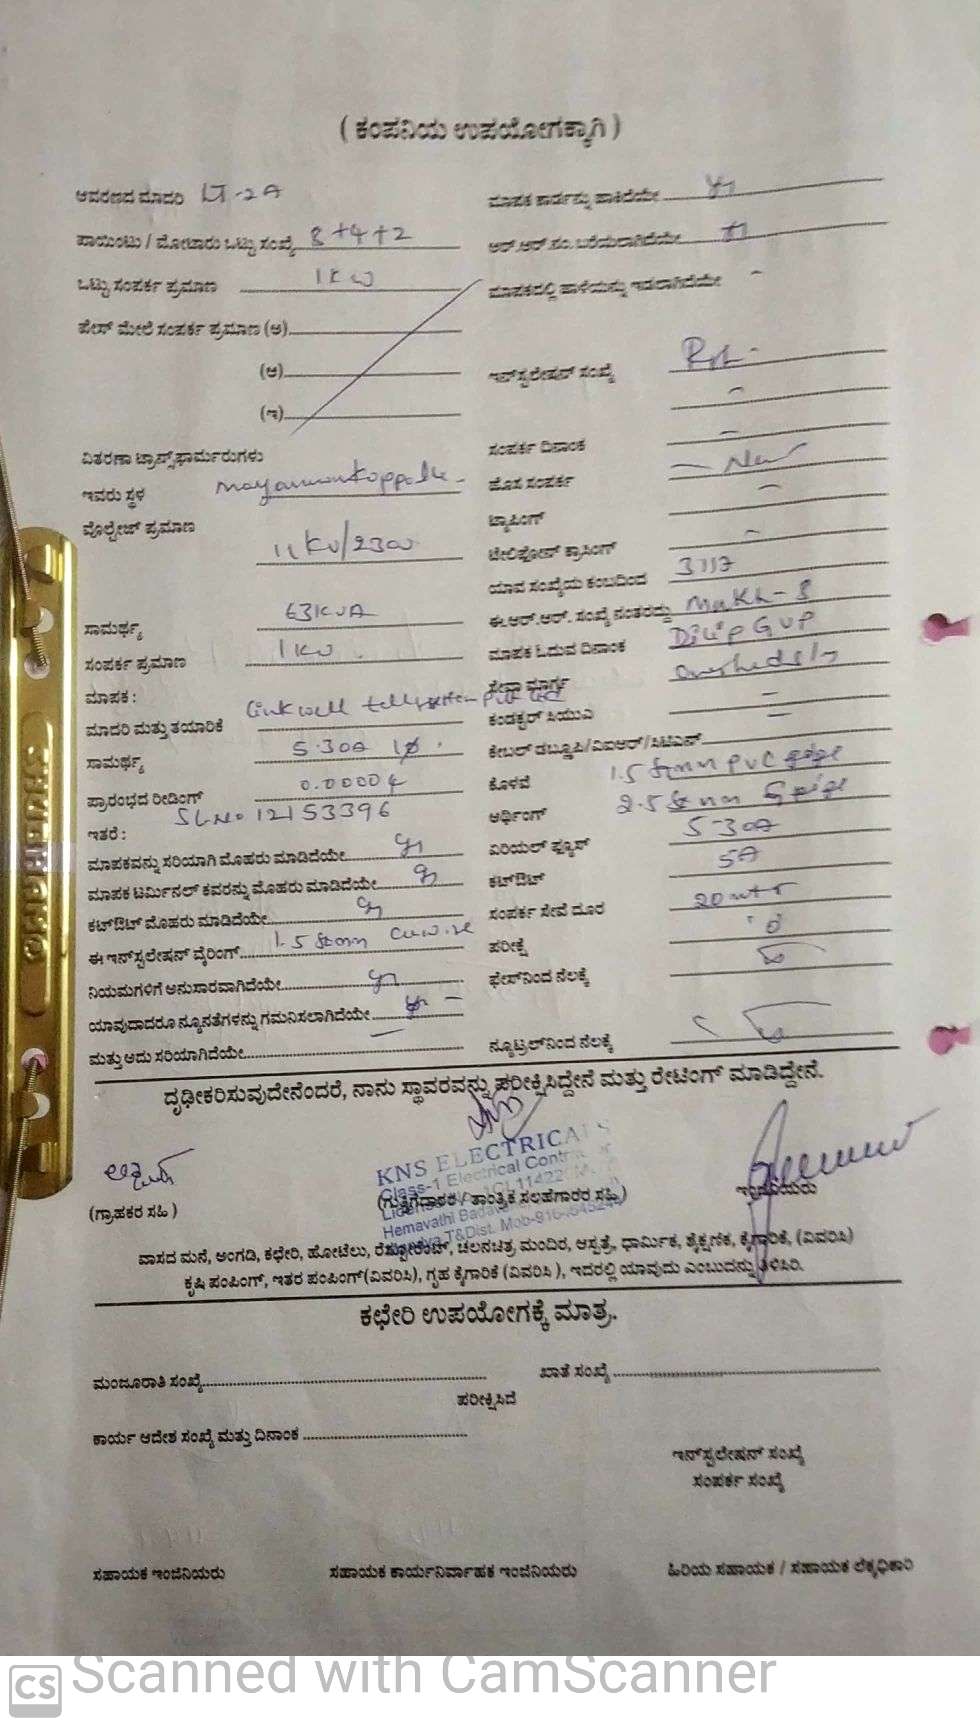 ( ಕಂಪನಿಯ ಉಪಯೋಗಕ್ಕಾಗಿ )
ಆವರಣದ ಮಾದರಿ LT-2A
ಪಾಯಿಂಟು / ಮೋಟಾರು ಒಟ್ಟು ಸಂಖ್ಯೆ 8+4+2
ಒಟ್ಟು ಸಂಪರ್ಕ ಪ್ರಮಾಣ 1KW
ಫೇಸ್ ಮೇಲೆ ಸಂಪರ್ಕ ಪ್ರಮಾಣ (ಅ)
(ಆ)
(ಇ)
ವಿತರಣಾ ಟ್ರಾನ್ಸ್‌ಫಾರ್ಮರುಗಳು
ಇವರು ಸ್ಥಳ
ವೊಲ್ಟೇಜ್ ಪ್ರಮಾಣ
11KV/230V
ಸಾಮರ್ಥ್ಯ 63KVA
ಸಂಪರ್ಕ ಪ್ರಮಾಣ 1KW
ಮಾಪಕ :
ಮಾದರಿ ಮತ್ತು ತಯಾರಿಕೆ Linkwell
ಸಾಮರ್ಥ್ಯ 5-30A 1ϕ
ಪ್ರಾರಂಭದ ರೀಡಿಂಗ್ 0.00004
ಇತರೆ : SL.No 12153396
ಮಾಪಕವನ್ನು ಸರಿಯಾಗಿ ಮೊಹರು ಮಾಡಿದೆಯೇ
ಮಾಪಕ ಟರ್ಮಿನಲ್ ಕವರನ್ನು ಮೊಹರು ಮಾಡಿದೆಯೇ
ಕಟ್‌ಔಟ್ ಮೊಹರು ಮಾಡಿದೆಯೇ
ಈ ಇನ್‌ಸ್ಟಲೇಷನ್ ವೈರಿಂಗ್ 1.5 Sqmm cuwire
ನಿಯಮಗಳಿಗೆ ಅನುಸಾರವಾಗಿದೆಯೇ
ಯಾವುದಾದರೂ ನ್ಯೂನತೆಗಳನ್ನು ಗಮನಿಸಲಾಗಿದೆಯೇ
ಮತ್ತು ಅದು ಸರಿಯಾಗಿದೆಯೇ
ಮಾಪಕ ಕಾರ್ಡನ್ನು ಹಾಕಿದೆಯೇ
ಆರ್.ಆರ್.ನಂ. ಬರೆಯಲಾಗಿದೆಯೇ
ಮಾಪಕದಲ್ಲಿ ಹಾಳೆಯನ್ನು ಇಡಲಾಗಿದೆಯೇ -
ಇನ್‌ಸ್ಟಲೇಷನ್ ಸಂಖ್ಯೆ
ಸಂಪರ್ಕ ದಿನಾಂಕ -
ಹೊಸ ಸಂಪರ್ಕ - New
ಟ್ಯಾಪಿಂಗ್ -
ಟೆಲಿಫೋನ್ ಕ್ರಾಸಿಂಗ್ -
ಯಾವ ಸಂಖ್ಯೆಯ ಕಂಬದಿಂದ 3117
ಈ.ಆರ್.ಆರ್. ಸಂಖ್ಯೆ ನಂತರದ್ದು MNKL-8
ಮಾಪಕ ಓದುವ ದಿನಾಂಕ Dilip GVP
ಸೇವಾ ಮಾರ್ಗ
ಕಂಡಕ್ಟರ್ ಸಿಯುಎ -
ಕೇಬಲ್ ಡಬ್ಲೂಪಿ/ವಿಐಆರ್/ಸಿಟಿಎಸ್ -
ಕೊಳವೆ 1.5 Sqmm PVC
ಅರ್ಥಿಂಗ್ 2.5 Sqmm
ಏರಿಯಲ್ ಫ್ಯೂಸ್ 5-30A
ಕಟ್‌ಔಟ್ 5A
ಸಂಪರ್ಕ ಸೇವೆ ದೂರ 20 mtr
ಪರೀಕ್ಷೆ
ಫೇಸ್‌ನಿಂದ ನೆಲಕ್ಕೆ
ನ್ಯೂಟ್ರಲ್‌ನಿಂದ ನೆಲಕ್ಕೆ
ದೃಢೀಕರಿಸುವುದೇನೆಂದರೆ, ನಾನು ಸ್ಥಾವರವನ್ನು ಪರೀಕ್ಷಿಸಿದ್ದೇನೆ ಮತ್ತು ರೇಟಿಂಗ್ ಮಾಡಿದ್ದೇನೆ.
KNS ELECTRICALS
Class-1 Electrical Contractor
(ಗ್ರಾಹಕರ ಸಹಿ )
(ಗುತ್ತಿಗೆದಾರಕ / ತಾಂತ್ರಿಕ ಸಲಹೆಗಾರರ ಸಹಿ)
ಇಂಜಿನಿಯರು
ವಾಸದ ಮನೆ, ಅಂಗಡಿ, ಕಛೇರಿ, ಹೋಟೆಲು, ರೆಸ್ಟೋರೆಂಟ್, ಚಲನಚಿತ್ರ ಮಂದಿರ, ಆಸ್ಪತ್ರೆ, ಧಾರ್ಮಿಕ, ಶೈಕ್ಷಣಿಕ, ಕೈಗಾರಿಕೆ, (ವಿವರಿಸಿ)
ಕೃಷಿ ಪಂಪಿಂಗ್, ಇತರ ಪಂಪಿಂಗ್(ವಿವರಿಸಿ), ಗೃಹ ಕೈಗಾರಿಕೆ (ವಿವರಿಸಿ ), ಇದರಲ್ಲಿ ಯಾವುದು ಎಂಬುದನ್ನು ತಿಳಿಸಿರಿ.
ಕಛೇರಿ ಉಪಯೋಗಕ್ಕೆ ಮಾತ್ರ.
ಮಂಜೂರಾತಿ ಸಂಖ್ಯೆ ಖಾತೆ ಸಂಖ್ಯೆ
ಪರೀಕ್ಷಿಸಿದೆ
ಕಾರ್ಯ ಆದೇಶ ಸಂಖ್ಯೆ ಮತ್ತು ದಿನಾಂಕ
ಇನ್‌ಸ್ಟಲೇಷನ್ ಸಂಖ್ಯೆ
ಸಂಪರ್ಕ ಸಂಖ್ಯೆ
ಸಹಾಯಕ ಇಂಜಿನಿಯರು ಸಹಾಯಕ ಕಾರ್ಯನಿರ್ವಾಹಕ ಇಂಜಿನಿಯರು ಹಿರಿಯ ಸಹಾಯಕ / ಸಹಾಯಕ ಲೆಕ್ಕಧಿಕಾರಿ
CS Scanned with CamScanner